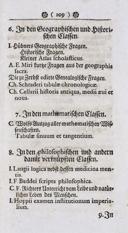 ( 109 )
6. In den Geographischen und Histori-
schen Classen.
I. Hübners Geographische Fragen.
Historische Fragen.
Kleiner Atlas scholasticus.
A. E. Miri kurtze Fragen aus der geographia
sacra.
Ch. Schraderi tabulæ chronologicæ.
Ch. Cellarii historia antiqua, medii ævi et
nova.
7. In den mathematischen Classen.
C. Wolfs Auszug aller mathematischen Wiß-
senschafften.
Tabulæ sinuum et tangentium.
8. In den philosophischen und andern
damit verknüpften Classen.
I. Langii logica nebst dessen medicina men-
tis.
I. F. Buddei scripta philosophica.
C. F. Richters Unterricht von Leibe und natür-
lichen Leben des Menschen.
I. Hoppii examen institutionum imperia-
lium.
9. In